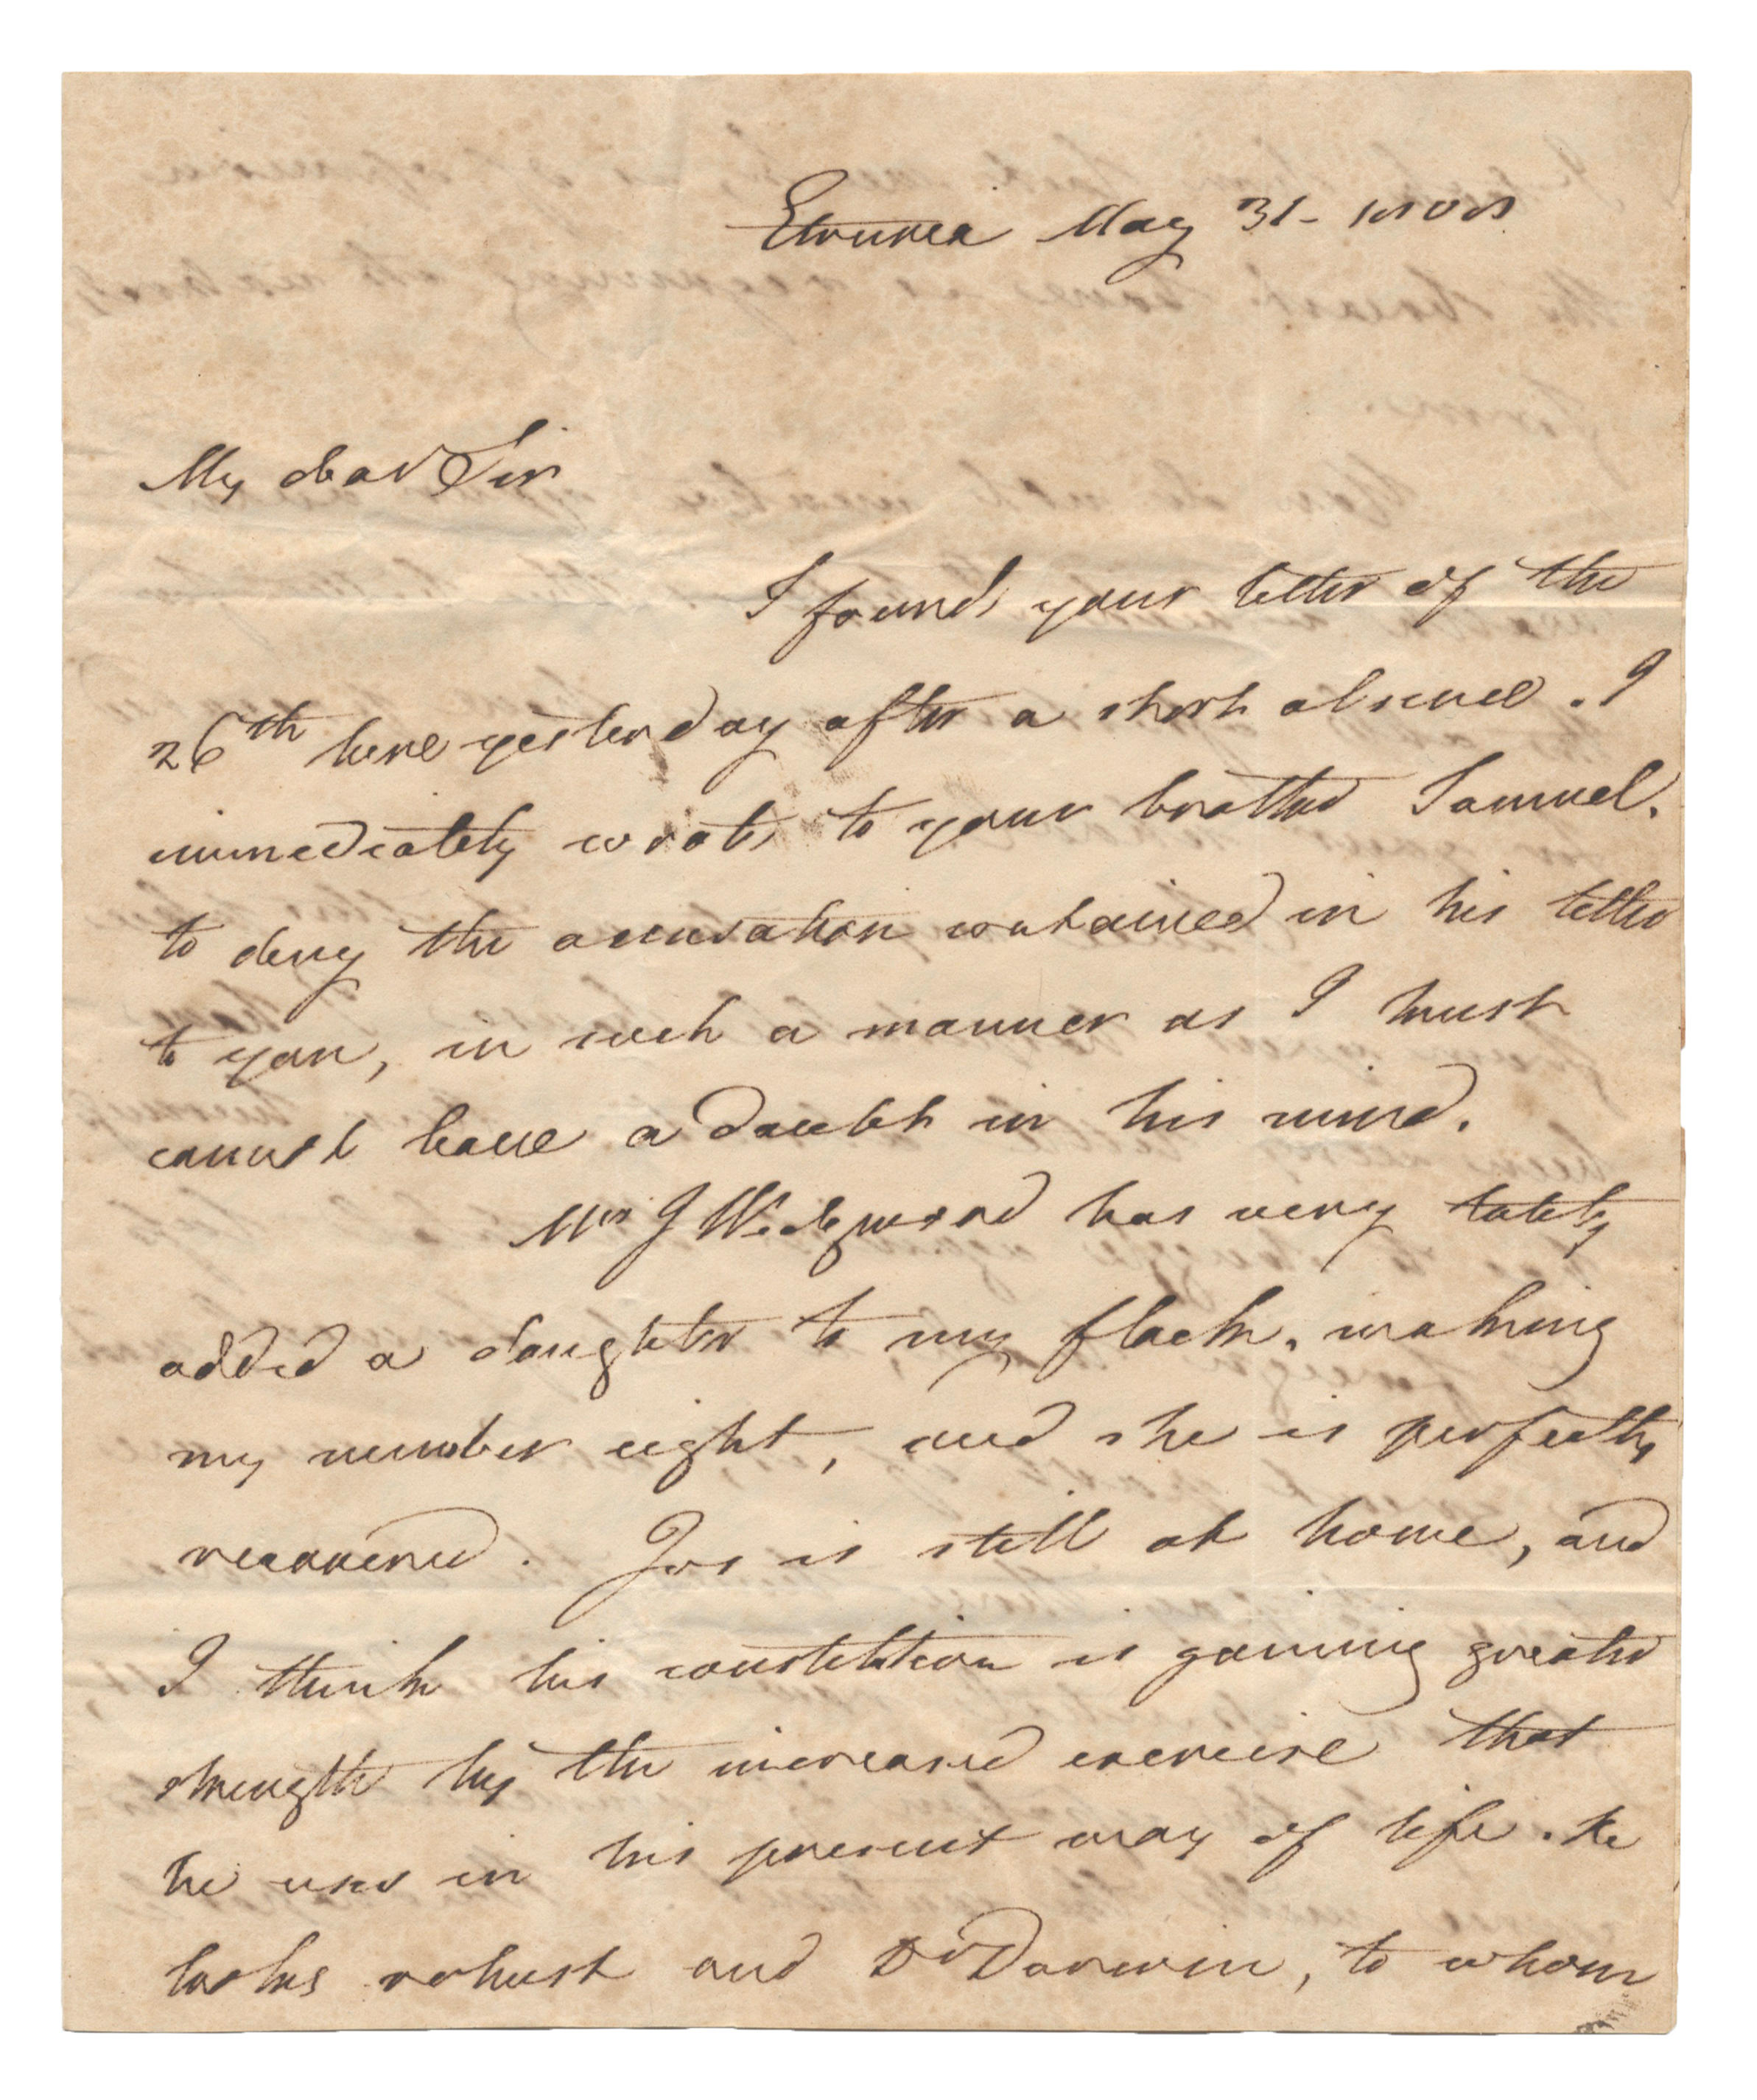 Etruria May 31 - 1808
My dear Sir
I found your letter of the
26th here yesterday after a short absence. I
immediately wrote to your brother Samuel.
to deny the accusation contained in his letter
to you, in such a manner as I trust
cannot leave a doubt in his mind.
Mrs J Wedgwood has very lately
added a daughter to my flock, making
my number eight, and she is perfectly
recovered. Jos is still at home, and
I think his constitution is gaining greater
strength by the increased exercise that
he uses in his present way of life. He
looks robust and Dr Darwin, to whom